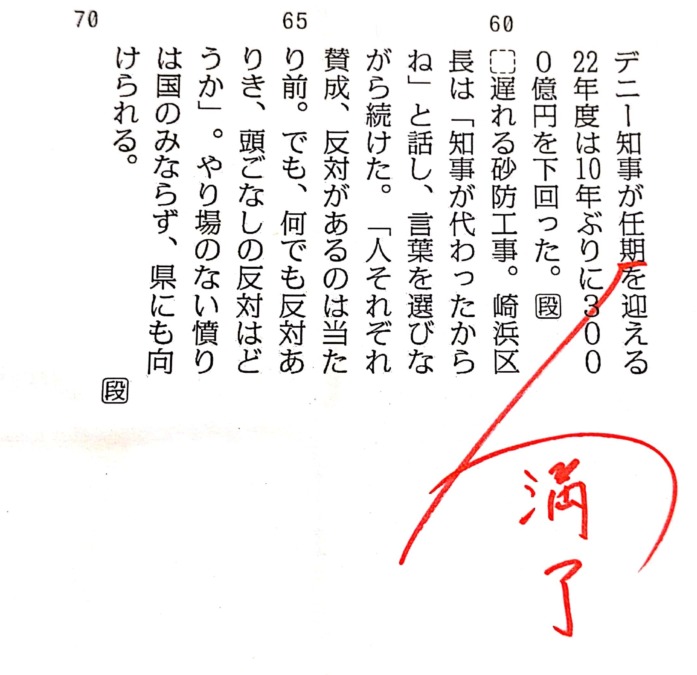 デニー知事が任期を迎える
22年度は10年ぶりに300
0億円を下回った。段
遅れる砂防工事。崎浜区
長は「知事が代わったから
ね」と話し、言葉を選びな
がら続けた。「人それぞれ
賛成、反対があるのは当た
り前。でも、何でも反対あ
りき、頭ごなしの反対はど
うか」。やり場のない憤り
は国のみならず、県にも向
けられる。
段
満了
60
65
70